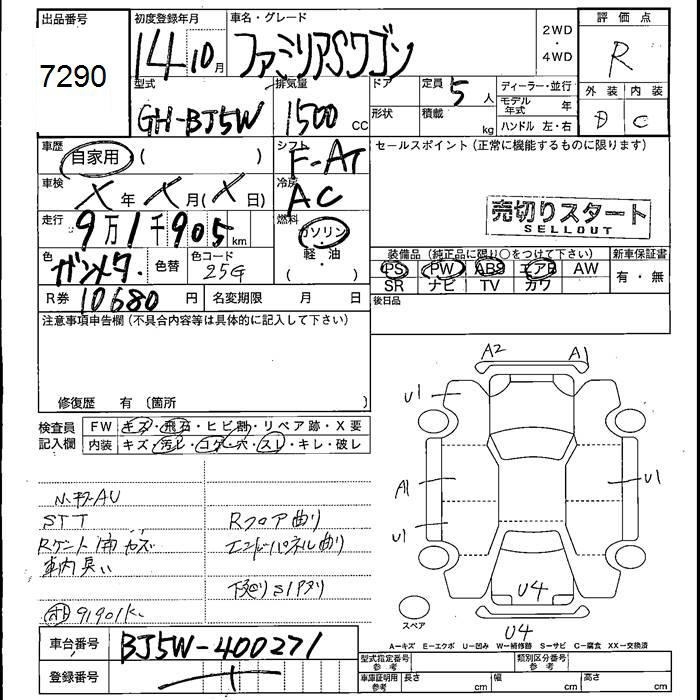 出品番号
7290
初度登録年月
14 10月
車名・グレード
ファミリアSワゴン
2WD
・
4WD
評価点
R
外装 内装
D C
型式
GH-BJ5W
排気量
1500 cc
ドア
形状
定員 5 人
積載 kg
ディーラー・並行
モデル年式 年
ハンドル 左・右
車歴
自家用 ( )
シフト
F-AT
車検
X 年 X 月 (X 日)
冷房
AC
走行
9万1千905 km
燃料
ガソリン
軽・油
色
ガンメタ.
色替
色コード
25G
R券 10680 円
名変期限 月 日
セールスポイント(正常に機能するものに限ります)
売切りスタート
SELLOUT
装備品(純正品に限り○をつけて下さい)
PS PW ABS エアB AW
SR ナビ TV カワ
新車保証書
有・無
後日品
注意事項申告欄(不具合内容等は具体的に記入して下さい)
修復歴 有 〔箇所 〕
検査員
記入欄
FW キズ・飛石・ヒビ割・リペア跡・X要
内装 キズ・汚レ・コゲ・穴・スレ・キレ・破レ
STT
車内臭い
91901K
Rフロア曲り
エンドパネル曲り
下廻りSIアリ
A2
A1
U1
A1
U1
U1
U4
U4
スペア
A=キズ E=エクボ U=凹み W=補修跡 S=サビ C=腐食 XX=交換済
車台番号
BJ5W-400271
登録番号
型式指定番号
参考
類別区分番号
参考
車庫証明用
参考
長さ cm 幅 cm 高さ cm